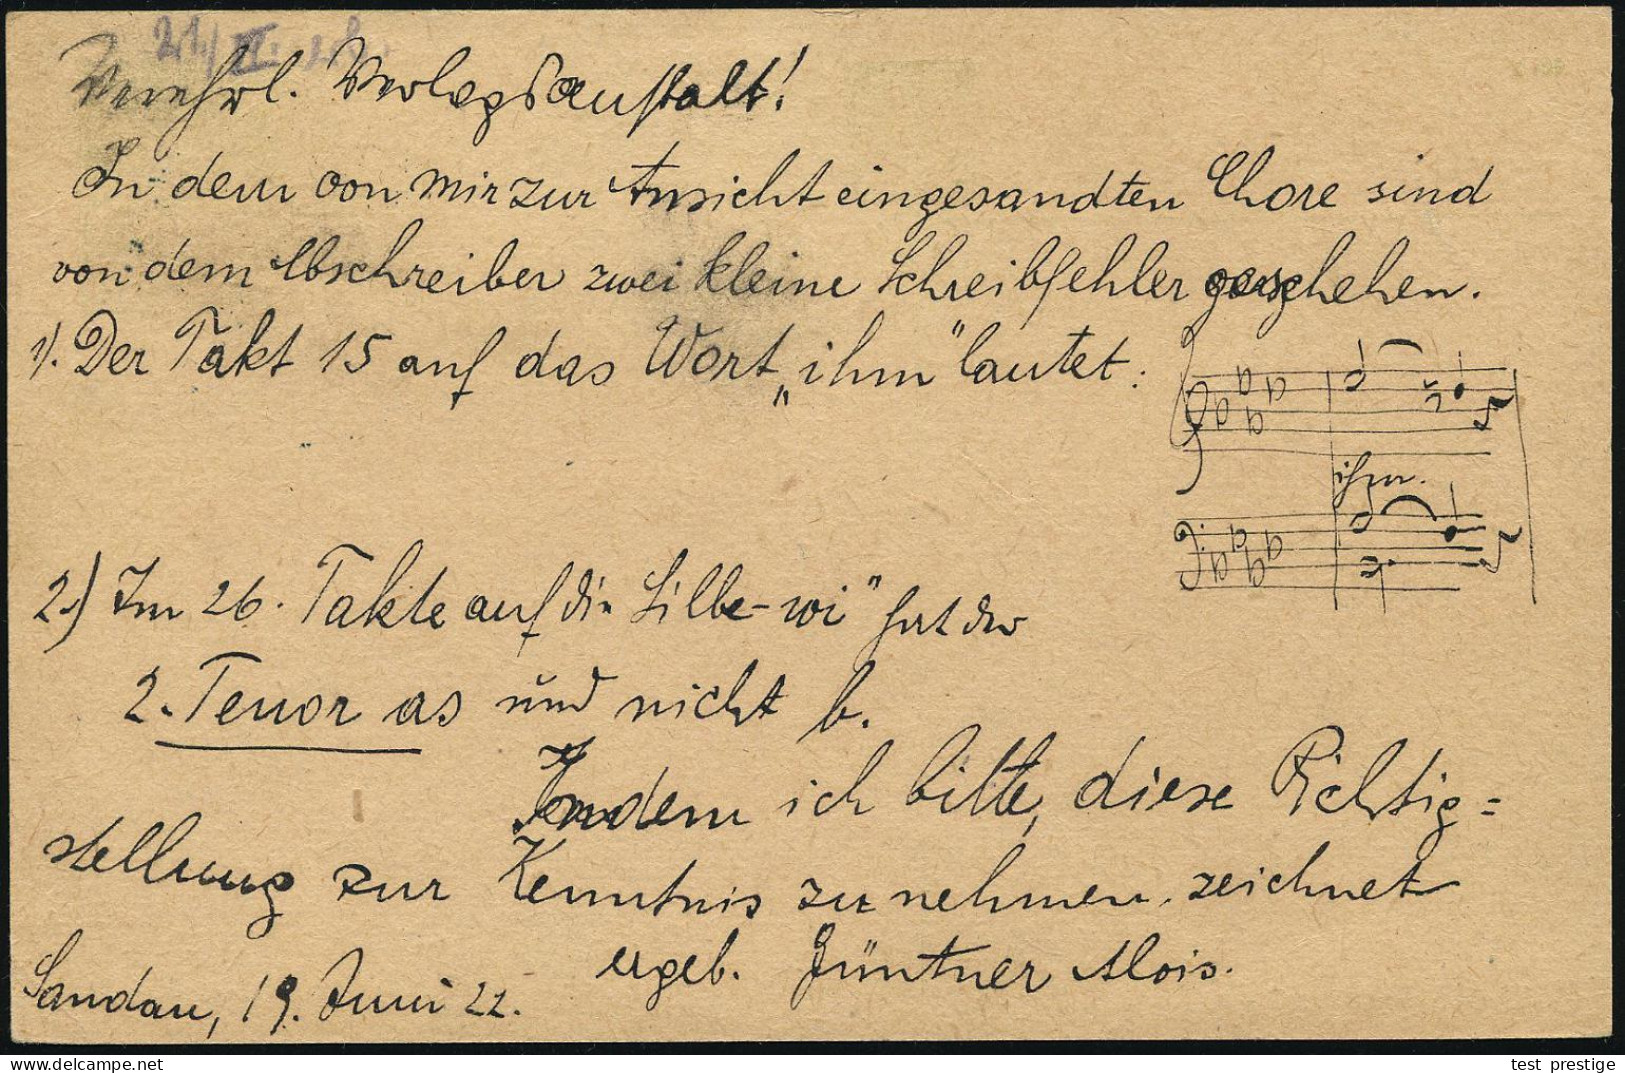 21./VI. 22.
Verehrl. Verlagsanstalt!
In dem von mir zur Ansicht eingesandten Chore sind
von dem Abschreiber zwei kleine Schreibfehler geschehen.
1). Der Takt 15 auf das Wort „ihm" lautet:
ihm.
2.) Im 26. Takte auf die Silbe -wi" hat der
2. Tenor as und nicht b.
Indem ich bitte, diese Richtig=
stellung zur Kenntnis zu nehmen, zeichnet
ergeb. Güntner Alois.
Sandau, 19. Juni 22.
Zum Vergrößern auf das Bild klicken / Click on the image to enlarge it
test_prestige